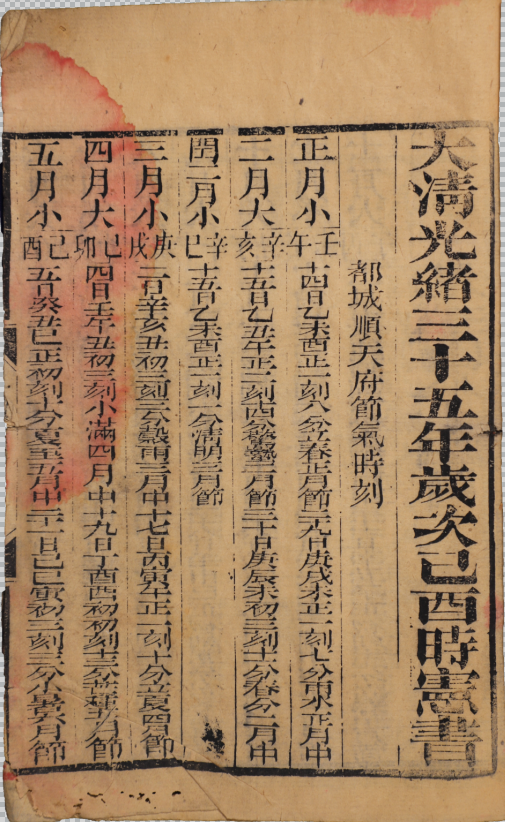 大清光緒三十五年歲次己酉時憲書
都城順天府節氣時刻
正月小 壬午 十四日乙未酉正一刻八分立春正月節二十九日庚戌未正一刻七分雨水正月中
二月大 辛亥 十五日乙丑午正二刻四分驚蟄二月節三十日庚辰未初三刻十一分春分二月中
閏二月小 辛巳 十五日乙未酉正一刻一分清明三月節
三月小 庚戌 二日辛亥丑初二刻二分穀雨三月中十七日丙寅午正一刻十分立夏四月節
四月大 己卯 四日壬午丑初三刻小滿四月中十九日丁酉酉初初刻十三分芒種五月節
五月小 己酉 五日癸丑巳正初刻十分夏至五月中二十一日己巳寅初三刻三分小暑六月節